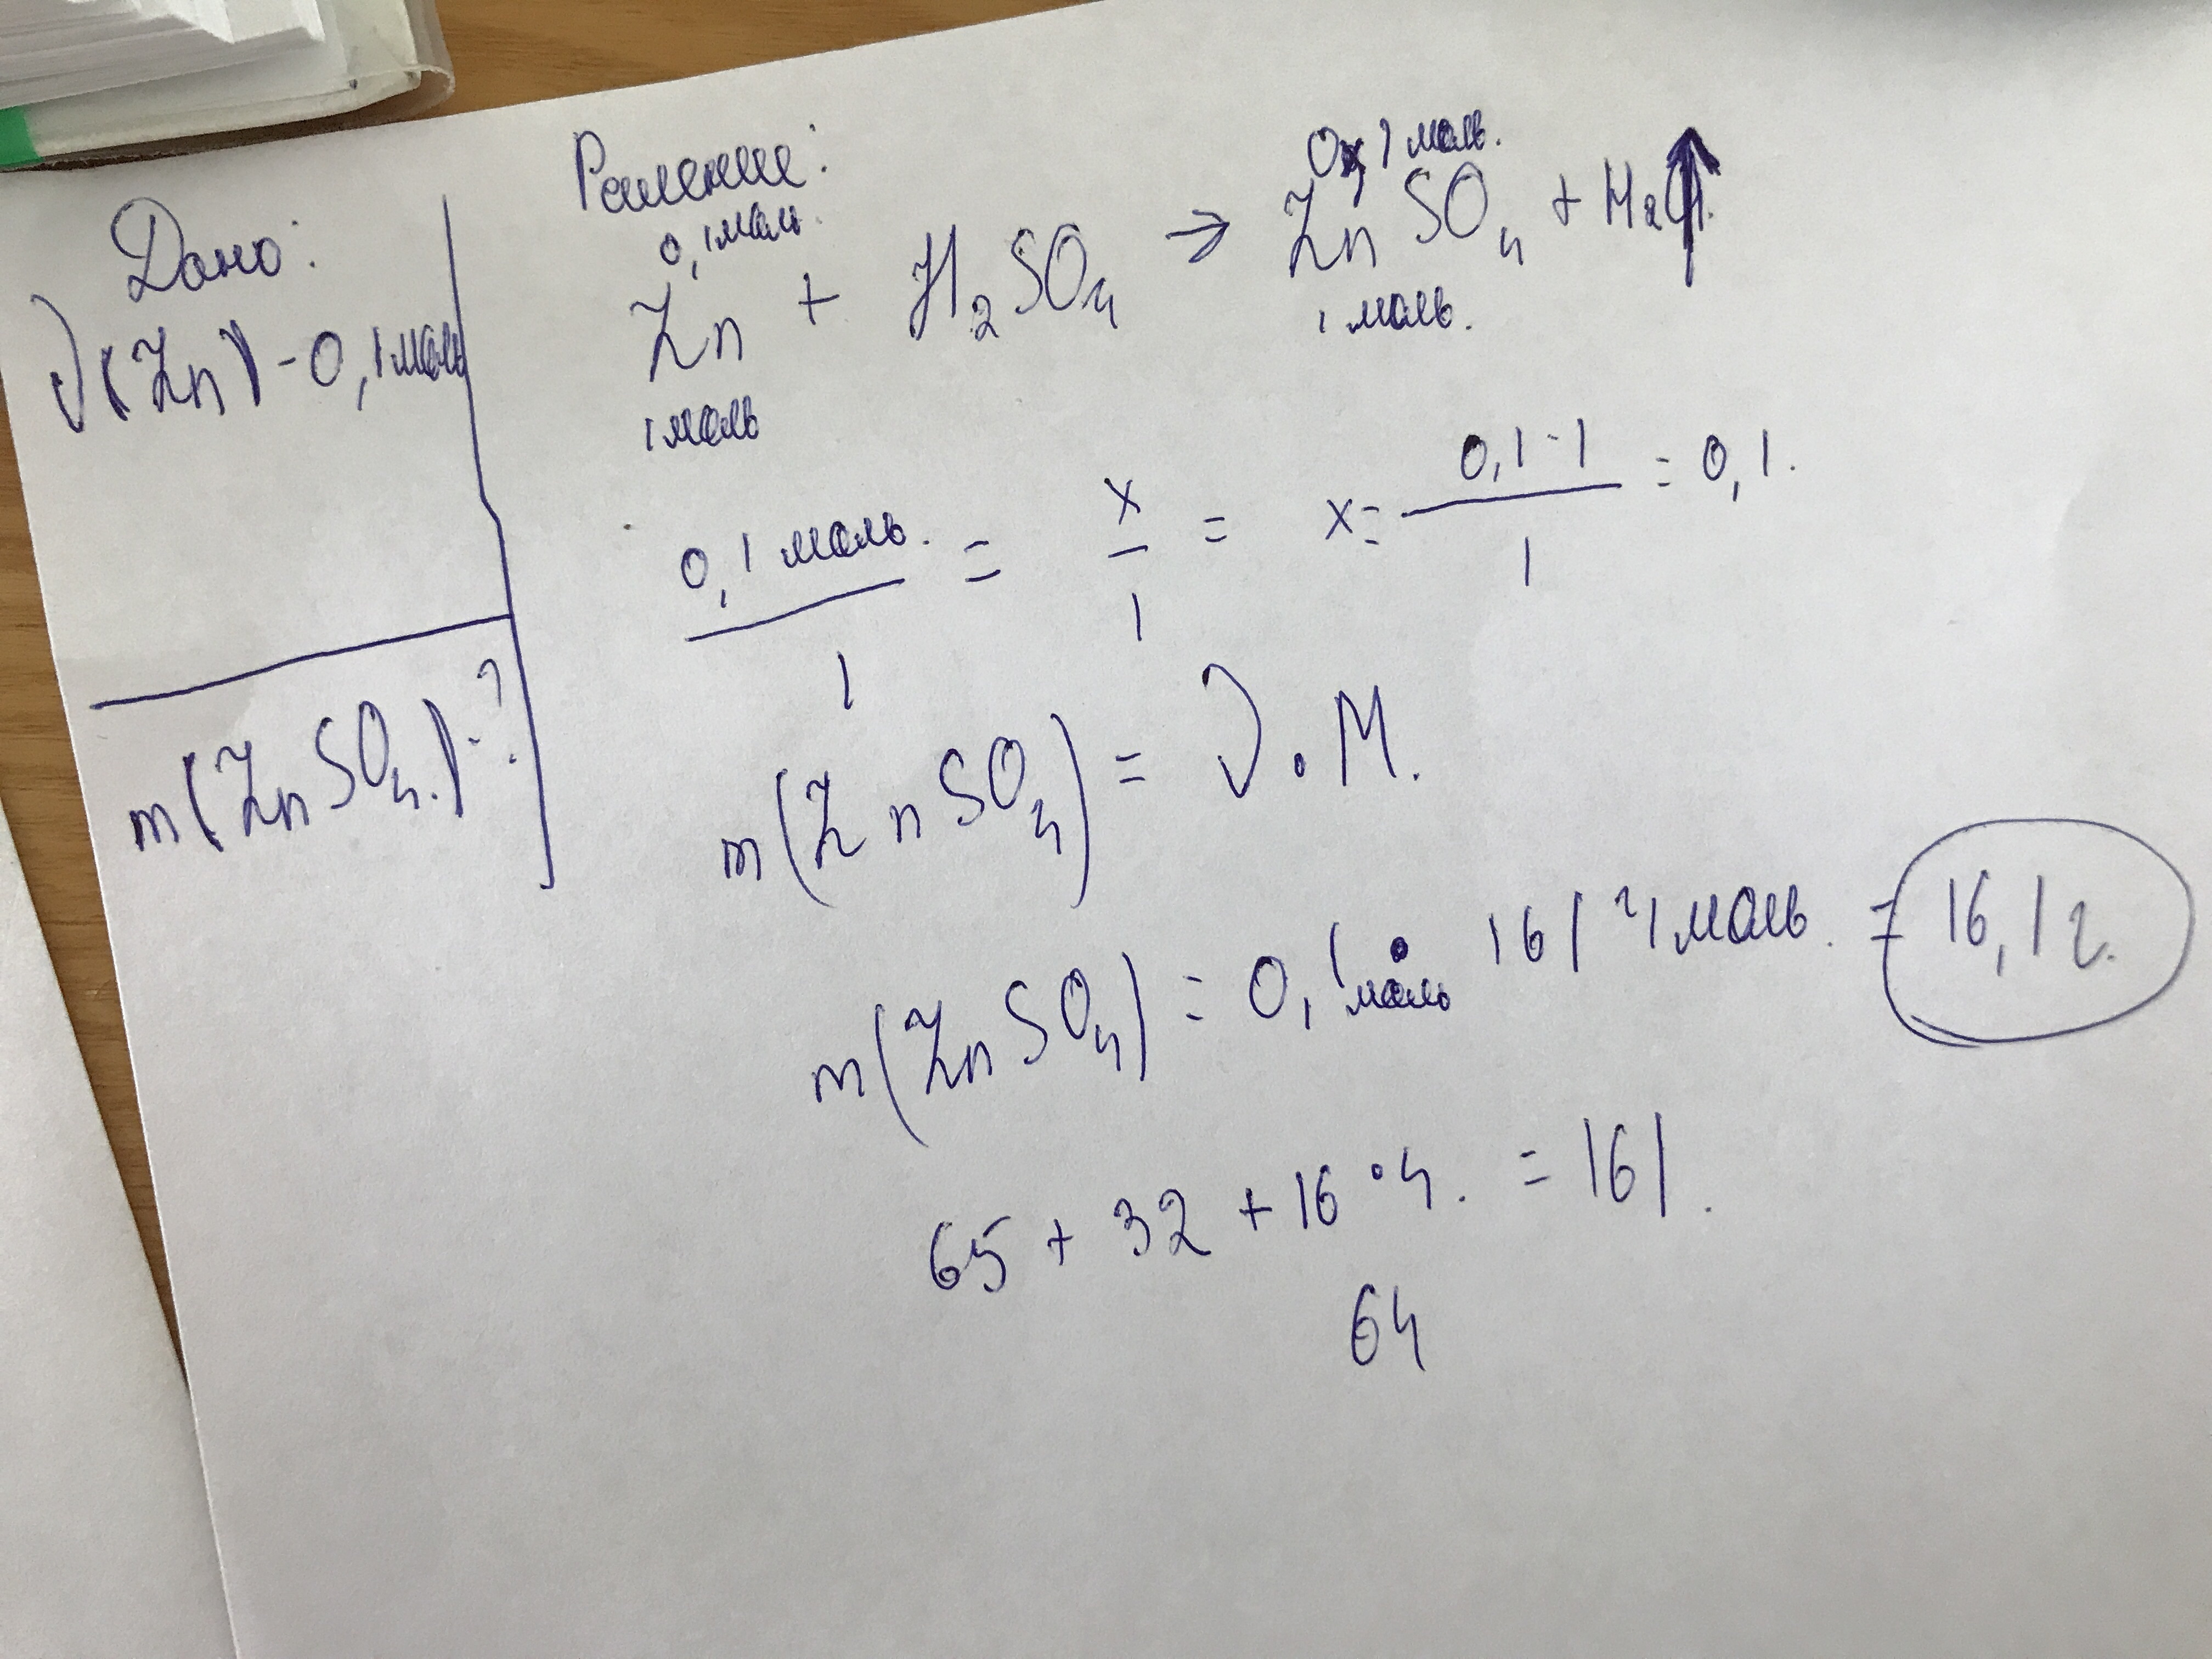 Дано:
ν(Zn) - 0,1 моль
m(ZnSO4.) - ?
Решение:
0,1 моль. 0,1 моль.
Zn + H2SO4 → ZnSO4 + H2↑.
1 моль 1 моль.
0,1 моль. / 1 = x / 1 = x = 0,1 · 1 / 1 = 0,1.
m(ZnSO4) = ν · M.
m(ZnSO4) = 0,1 моль · 161 г/моль. = 16,1 г.
65 + 32 + 16 · 4. = 161.
64